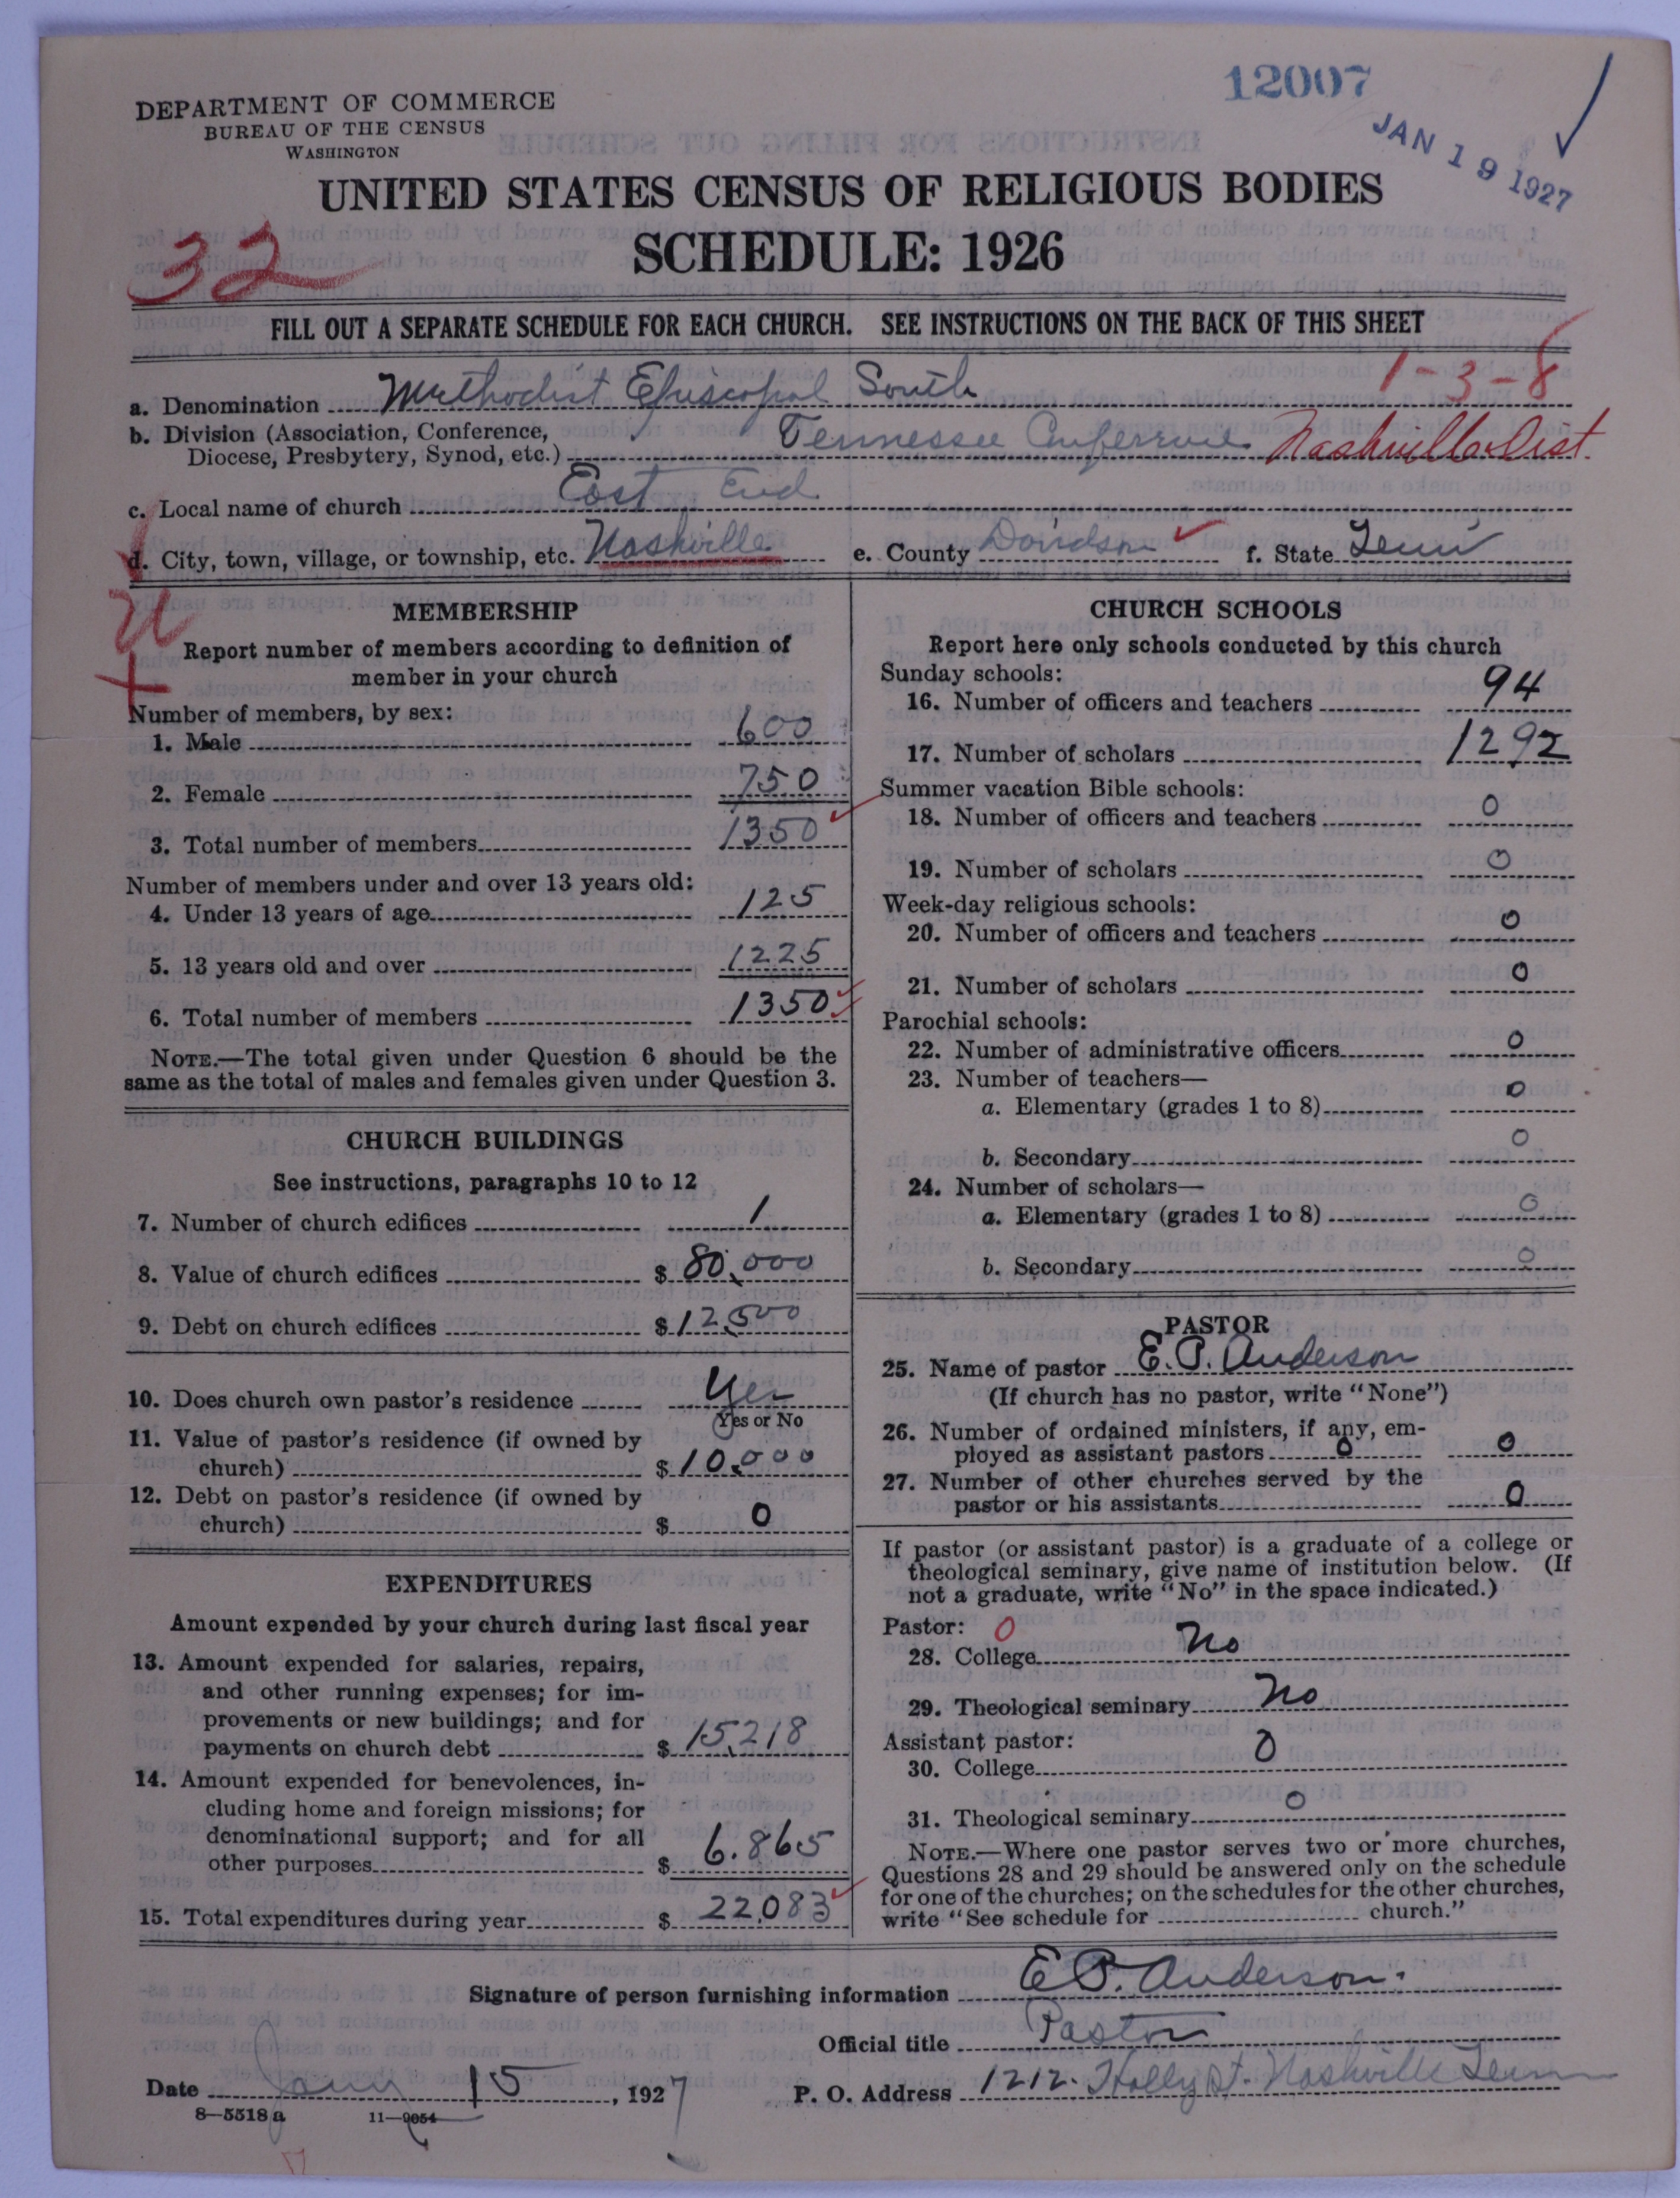 12007
JAN 19 1927
DEPARTMENT OF COMMERCE
BUREAU OF THE CENSUS
WASHINGTON
UNITED STATES CENSUS OF RELIGIOUS BODIES
SCHEDULE: 1926
32
FILL OUT A SEPARATE SCHEDULE FOR EACH CHURCH. SEE INSTRUCTIONS ON THE BACK OF THIS SHEET
1-3-8
a. Denomination Methodist Episcopal South
b. Division (Association, Conference,
Diocese, Presbytery, Synod, etc.) Tennessee Conference Nashville Dist.
c. Local name of church East End
d. City, town, village, or township, etc. Nashville e. County Davidson f. State Tenn
MEMBERSHIP
Report number of members according to definition of
member in your church
Number of members, by sex:
1. Male 600
2. Female 750
3. Total number of members 1350
Number of members under and over 13 years old:
4. Under 13 years of age 125
5. 13 years old and over 1225
6. Total number of members 1350
NOTE.—The total given under Question 6 should be the
same as the total of males and females given under Question 3.
CHURCH BUILDINGS
See instructions, paragraphs 10 to 12
7. Number of church edifices 1
8. Value of church edifices $ 80,000
9. Debt on church edifices $ 12,500
10. Does church own pastor's residence Yes
Yes or No
11. Value of pastor's residence (if owned by
church) $ 10,000
12. Debt on pastor's residence (if owned by
church) $ 0
EXPENDITURES
Amount expended by your church during last fiscal year
13. Amount expended for salaries, repairs,
and other running expenses; for im-
provements or new buildings; and for
payments on church debt $ 15,218
14. Amount expended for benevolences, in-
cluding home and foreign missions; for
denominational support; and for all
other purposes $ 6.865
15. Total expenditures during year $ 22,083
CHURCH SCHOOLS
Report here only schools conducted by this church
Sunday schools:
16. Number of officers and teachers 94
17. Number of scholars 1292
Summer vacation Bible schools:
18. Number of officers and teachers 0
19. Number of scholars 0
Week-day religious schools:
20. Number of officers and teachers 0
21. Number of scholars 0
Parochial schools:
22. Number of administrative officers 0
23. Number of teachers—
a. Elementary (grades 1 to 8) 0
b. Secondary 0
24. Number of scholars—
a. Elementary (grades 1 to 8) 0
b. Secondary 0
PASTOR
25. Name of pastor E. P. Anderson
(If church has no pastor, write "None")
26. Number of ordained ministers, if any, em-
ployed as assistant pastors 0 0
27. Number of other churches served by the
pastor or his assistants 0
If pastor (or assistant pastor) is a graduate of a college or
theological seminary, give name of institution below. (If
not a graduate, write "No" in the space indicated.)
Pastor: 0
28. College No
29. Theological seminary No
Assistant pastor:
30. College 0
31. Theological seminary 0
NOTE.—Where one pastor serves two or more churches,
Questions 28 and 29 should be answered only on the schedule
for one of the churches; on the schedules for the other churches,
write "See schedule for church."
Signature of person furnishing information E P. Anderson.
Official title Pastor
Date Jany 15, 1927 P. O. Address 1212. Holly St. Nashville Tenn
8—5518 a 11—9054